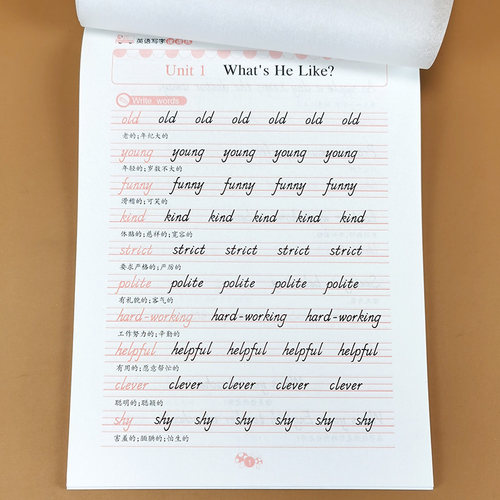 英语写字
Unit 1 What's He Like?
Write words
old old old old old old old
老的;年纪大的
young young young young young
年轻的;岁数不大的
funny funny funny funny funny
滑稽的;可笑的
kind kind kind kind kind kind
体贴的;慈祥的;宽容的
strict strict strict strict strict
要求严格的;严厉的
polite polite polite polite polite
有礼貌的;客气的
hard-working hard-working hard-working
工作努力的;辛勤的
helpful helpful helpful helpful helpful
有用的;愿意帮忙的
clever clever clever clever clever
聪明的;聪颖的
shy shy shy shy shy shy shy
害羞的;腼腆的;怕生的
1